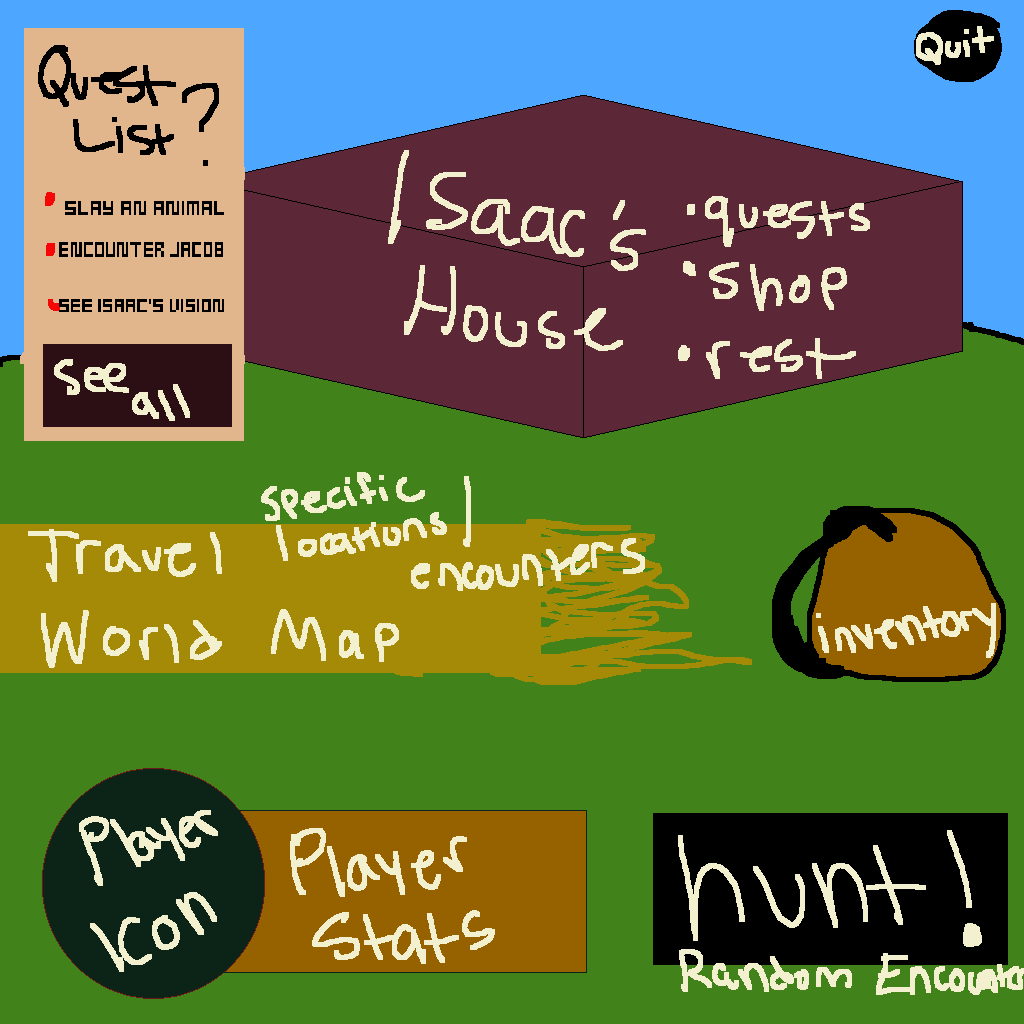 Quit
Quest
List?
SLAY AN ANIMAL
ENCOUNTER JACOB
SEE ISAAC'S VISION
See
all
Isaac's
House
•quests
•shop
•rest
specific
locations/
encounters
Travel
World Map
inventory
Player
Icon
Player
Stats
hunt!
Random Encounter